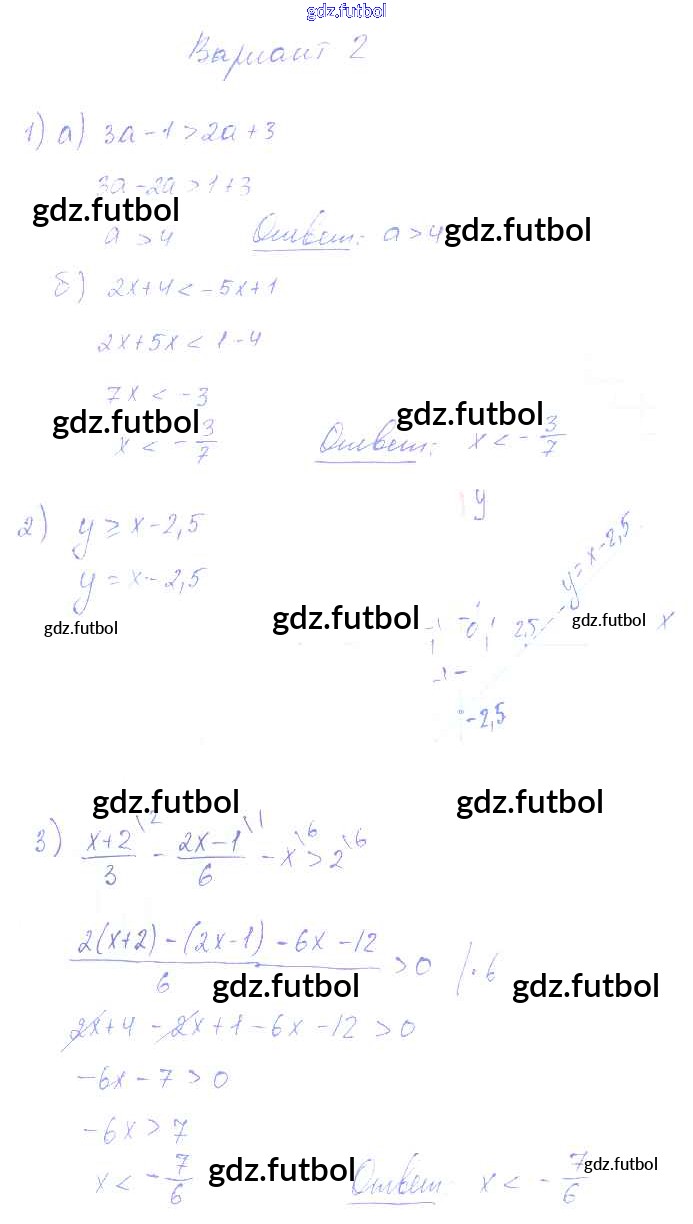 gdz.futbol
Вариант 2
1) а) 3a - 1 > 2a + 3
3a - 2a > 1 + 3
gdz.futbol
a > 4 Ответ: a > 4 gdz.futbol
б) 2x + 4 < -5x + 1
2x + 5x < 1 - 4
7x < -3
gdz.futbol gdz.futbol
x < -3/7 Ответ: x < -3/7
2) y ≥ x - 2,5 y
y = x - 2,5 y = x - 2,5
gdz.futbol gdz.futbol -1 0 1 2,5 gdz.futbol x
-1
-2,5
gdz.futbol gdz.futbol
3) (x+2)/3 \2 - (2x-1)/6 \1 - x \6 > 2 \6
(2(x+2) - (2x-1) - 6x - 12)/6 > 0 | · 6
gdz.futbol gdz.futbol
2x + 4 - 2x + 1 - 6x - 12 > 0
-6x - 7 > 0
-6x > 7
x < -7/6 gdz.futbol Ответ: x < -7/6 gdz.futbol